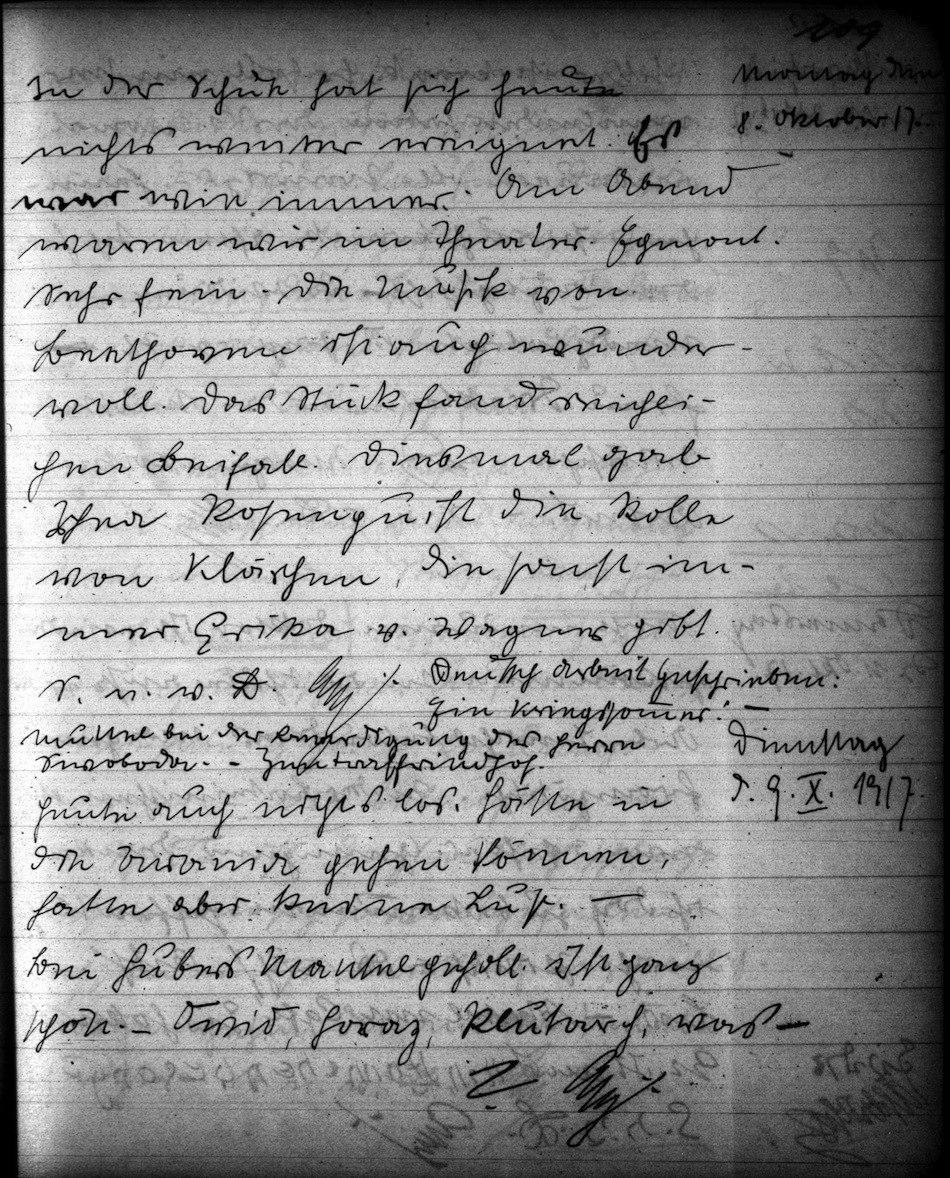 209
Montag den
8. Oktober 17.
In der Schule hat sich heute
nichts weiter ereignet. Es
war wie immer. Am Abend
waren wir im Theater. Egmont.
Sehr fein. Die Musik von
Beethoven ist auch wunder-
voll. Das Stück fand reichli-
chen Beifall. Diesmal gab
Thea Rosenquist die Rolle
von Klärchen, die sonst im-
mer Erika v. Wagner gibt.
S. u. w. D.
Deutsch Arbeit geschrieben:
Ein Kriegssommer. —
Mutter bei der Beerdigung des Herrn
Swoboda. - Zentralfriedhof.
Dienstag
d. 9. X. 1917.
Heute auch nichts los. Hätte in
die Urania gehen können,
hatte aber keine Lust. —
Bei Hubers Mantel geholt. Ist ganz
schön. — Ovid, Horaz, Plutarch, was —
?